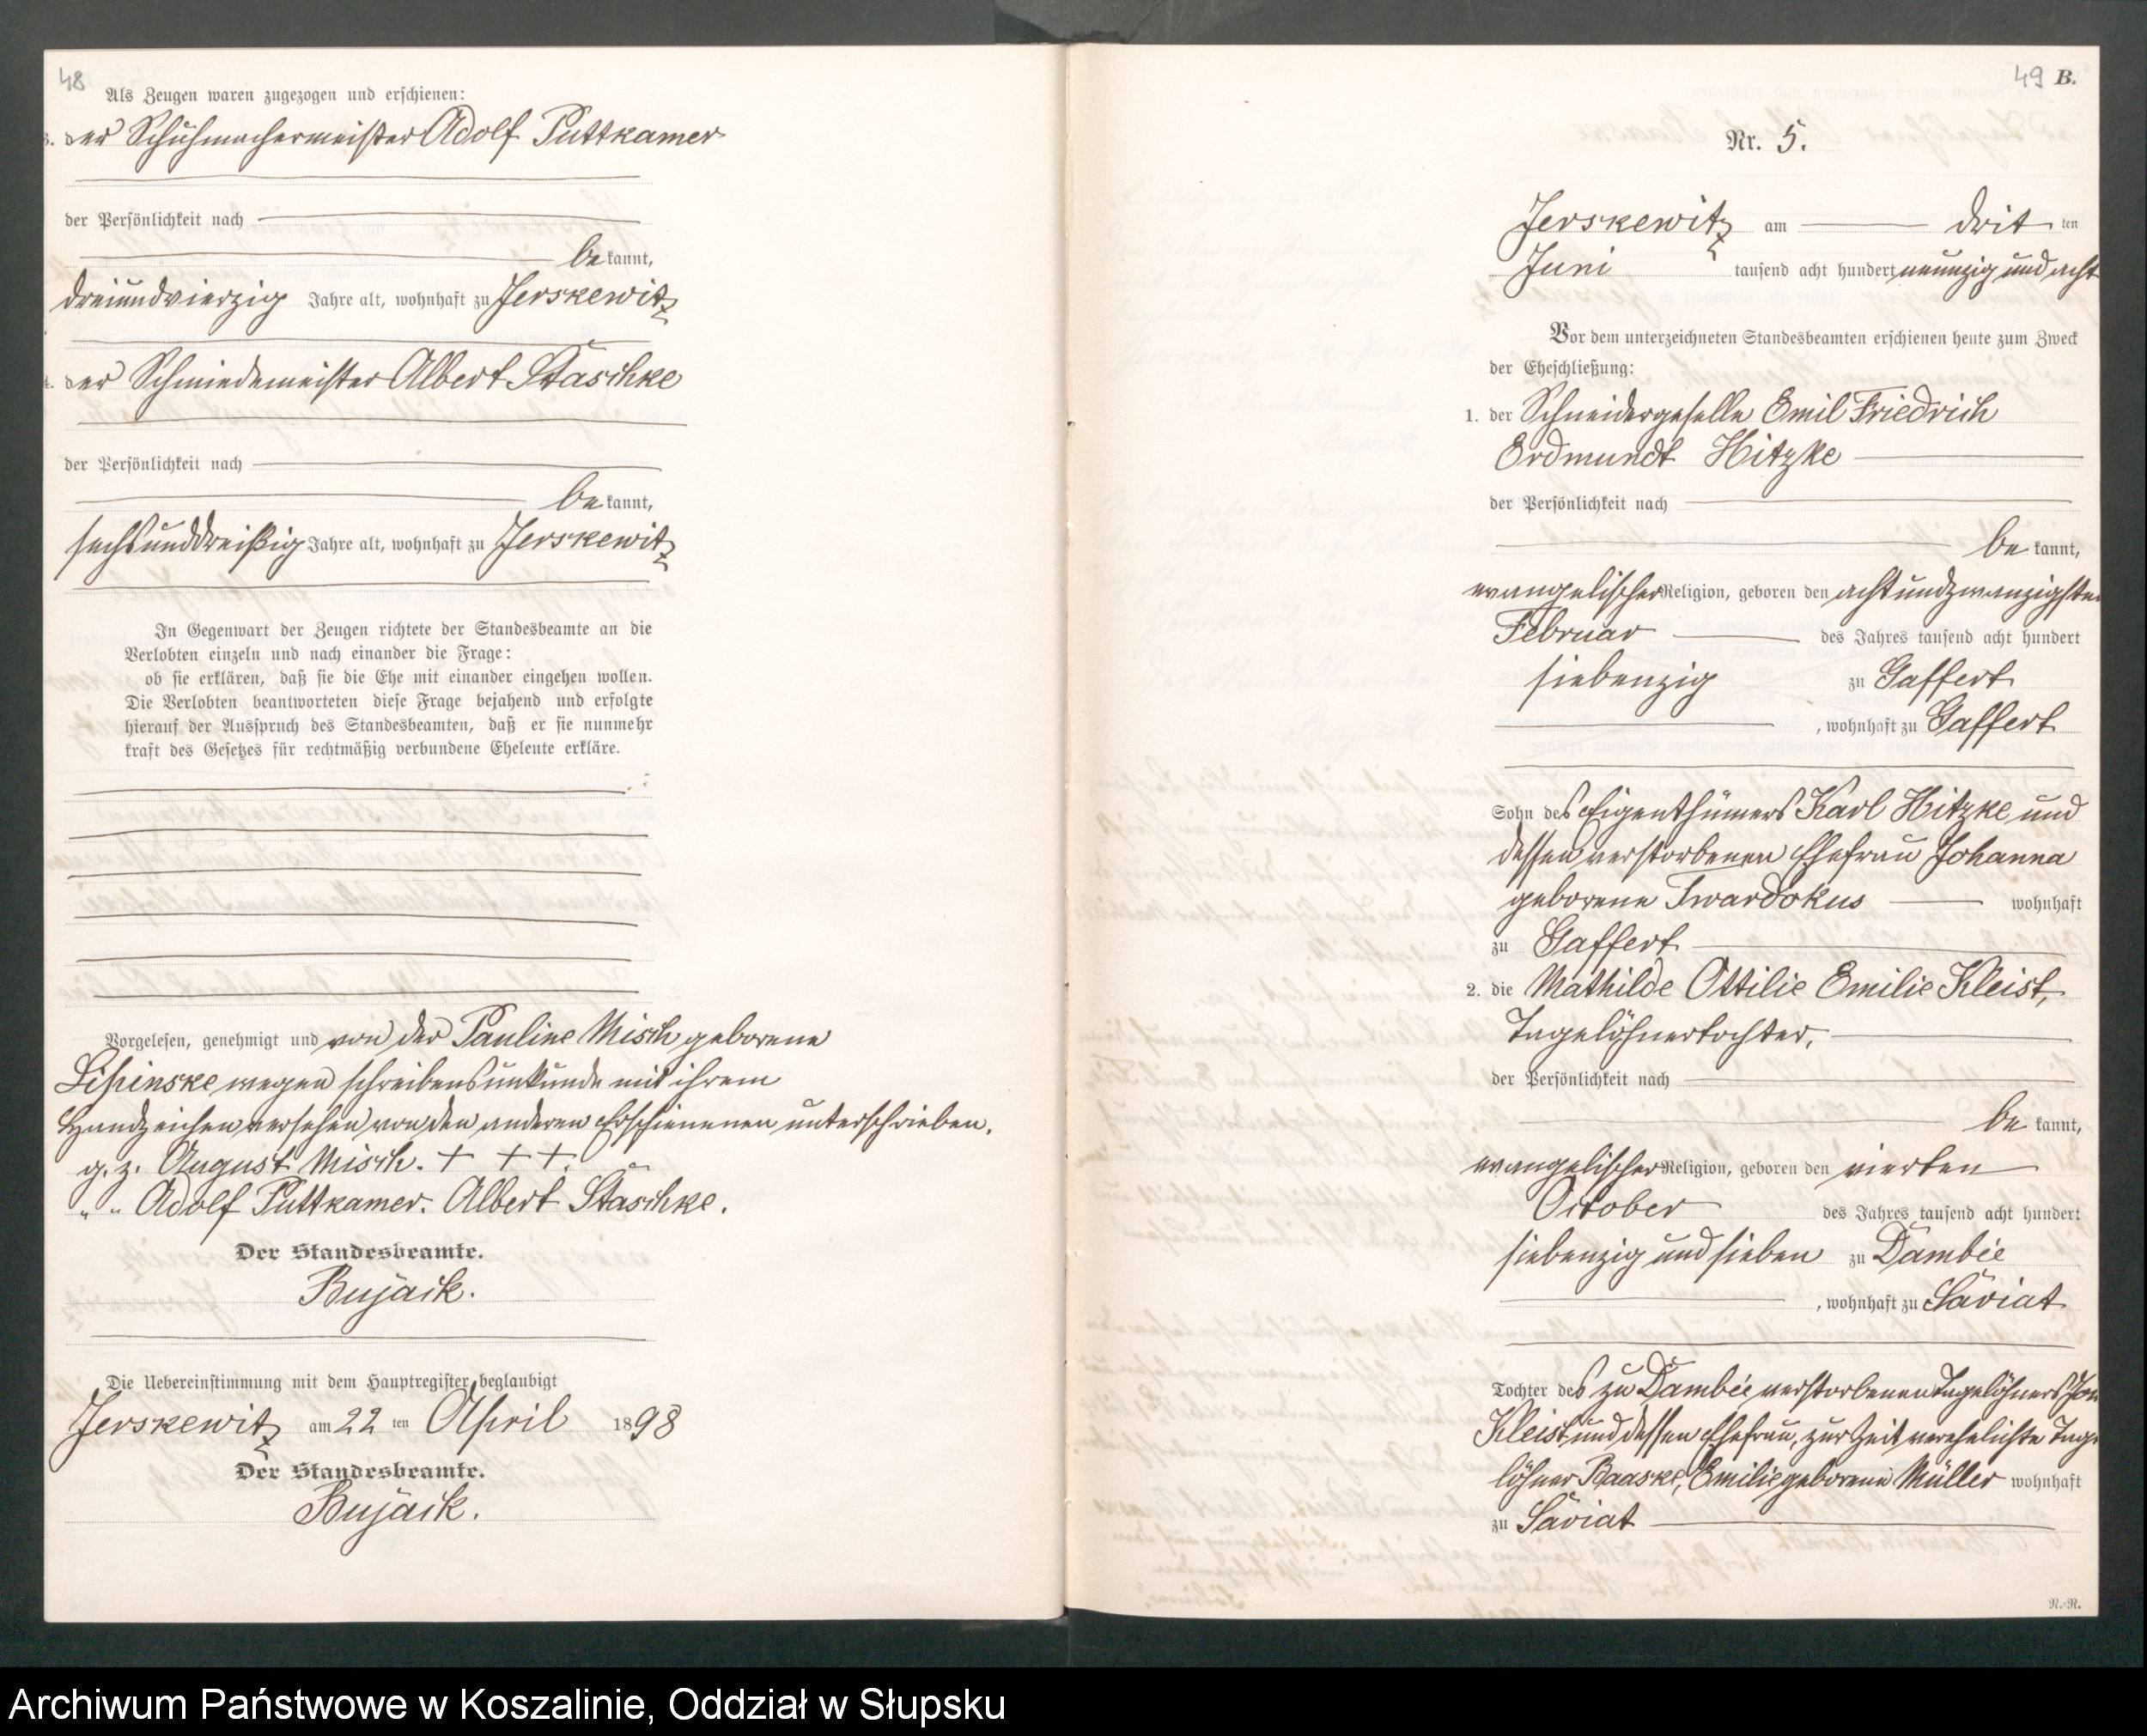 48
Als Zeugen waren zugezogen und erschienen:
3. der Schuhmachermeister Adolf Puttkamer
der Persönlichkeit nach
bekannt,
dreiundvierzig Jahre alt, wohnhaft zu Jerskewitz
4. der Schmiedemeister Albert Staschke
der Persönlichkeit nach
bekannt,
sechsunddreißig Jahre alt, wohnhaft zu Jerskewitz
In Gegenwart der Zeugen richtete der Standesbeamte an die
Verlobten einzeln und nach einander die Frage:
ob sie erklären, daß sie die Ehe mit einander eingehen wollen.
Die Verlobten beantworteten diese Frage bejahend und erfolgte
hierauf der Ausspruch des Standesbeamten, daß er sie nunmehr
kraft des Gesetzes für rechtmäßig verbundene Eheleute erkläre.
Vorgelesen, genehmigt und von der Pauline Misch geborene
Lipinske wegen Schreibensunkunde mit ihrem
Handzeichen versehen von den anderen Erschienenen unterschrieben.
g. z. August Misch. + + +.
" " Adolf Puttkamer. Albert Staschke.
Der Standesbeamte.
Bujack.
Die Uebereinstimmung mit dem Hauptregister beglaubigt
Jerskewitz am 22 ten April 1898
Der Standesbeamte.
Bujack.
49 B.
Nr. 5.
Jerskewitz am dritten
Juni tausend acht hundert neunzig und acht
Vor dem unterzeichneten Standesbeamten erschienen heute zum Zweck
der Eheschließung:
1. der Schneidergeselle Emil Friedrich
Erdmundt Hitzke
der Persönlichkeit nach
bekannt,
evangelischer Religion, geboren den achtundzwanzigsten
Februar des Jahres tausend acht hundert
siebenzig zu Gaffert
, wohnhaft zu Gaffert
Sohn des Eigenthümers Karl Hitzke und
dessen verstorbenen Ehefrau Johanna
geborene Twardokus wohnhaft
zu Gaffert
2. die Mathilde Ottilie Emilie Kleist,
Tagelöhnertochter,
der Persönlichkeit nach
bekannt,
evangelischer Religion, geboren den vierten
October des Jahres tausend acht hundert
siebenzig und sieben zu Dambee
, wohnhaft zu Saviat
Tochter des zu Dambee verstorbenen Tagelöhners
Kleist und dessen Ehefrau, zur Zeit verehelichte Tage
löhner Baaske, Emilie geborene Müller wohnhaft
zu Saviat
R.-R.
Archiwum Państwowe w Koszalinie, Oddział w Słupsku